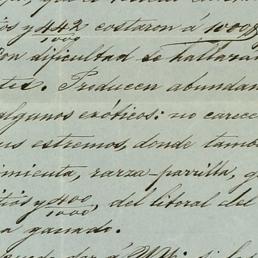 y 442/1000 costaron á 1000
con dificultad se hallará
Producen abundan
algunos exóticos: no carece
sus estremos, donde tamb
imienta, zarza-parrilla, g
y 400/1000, del litoral del
a ganado.
puede dar á